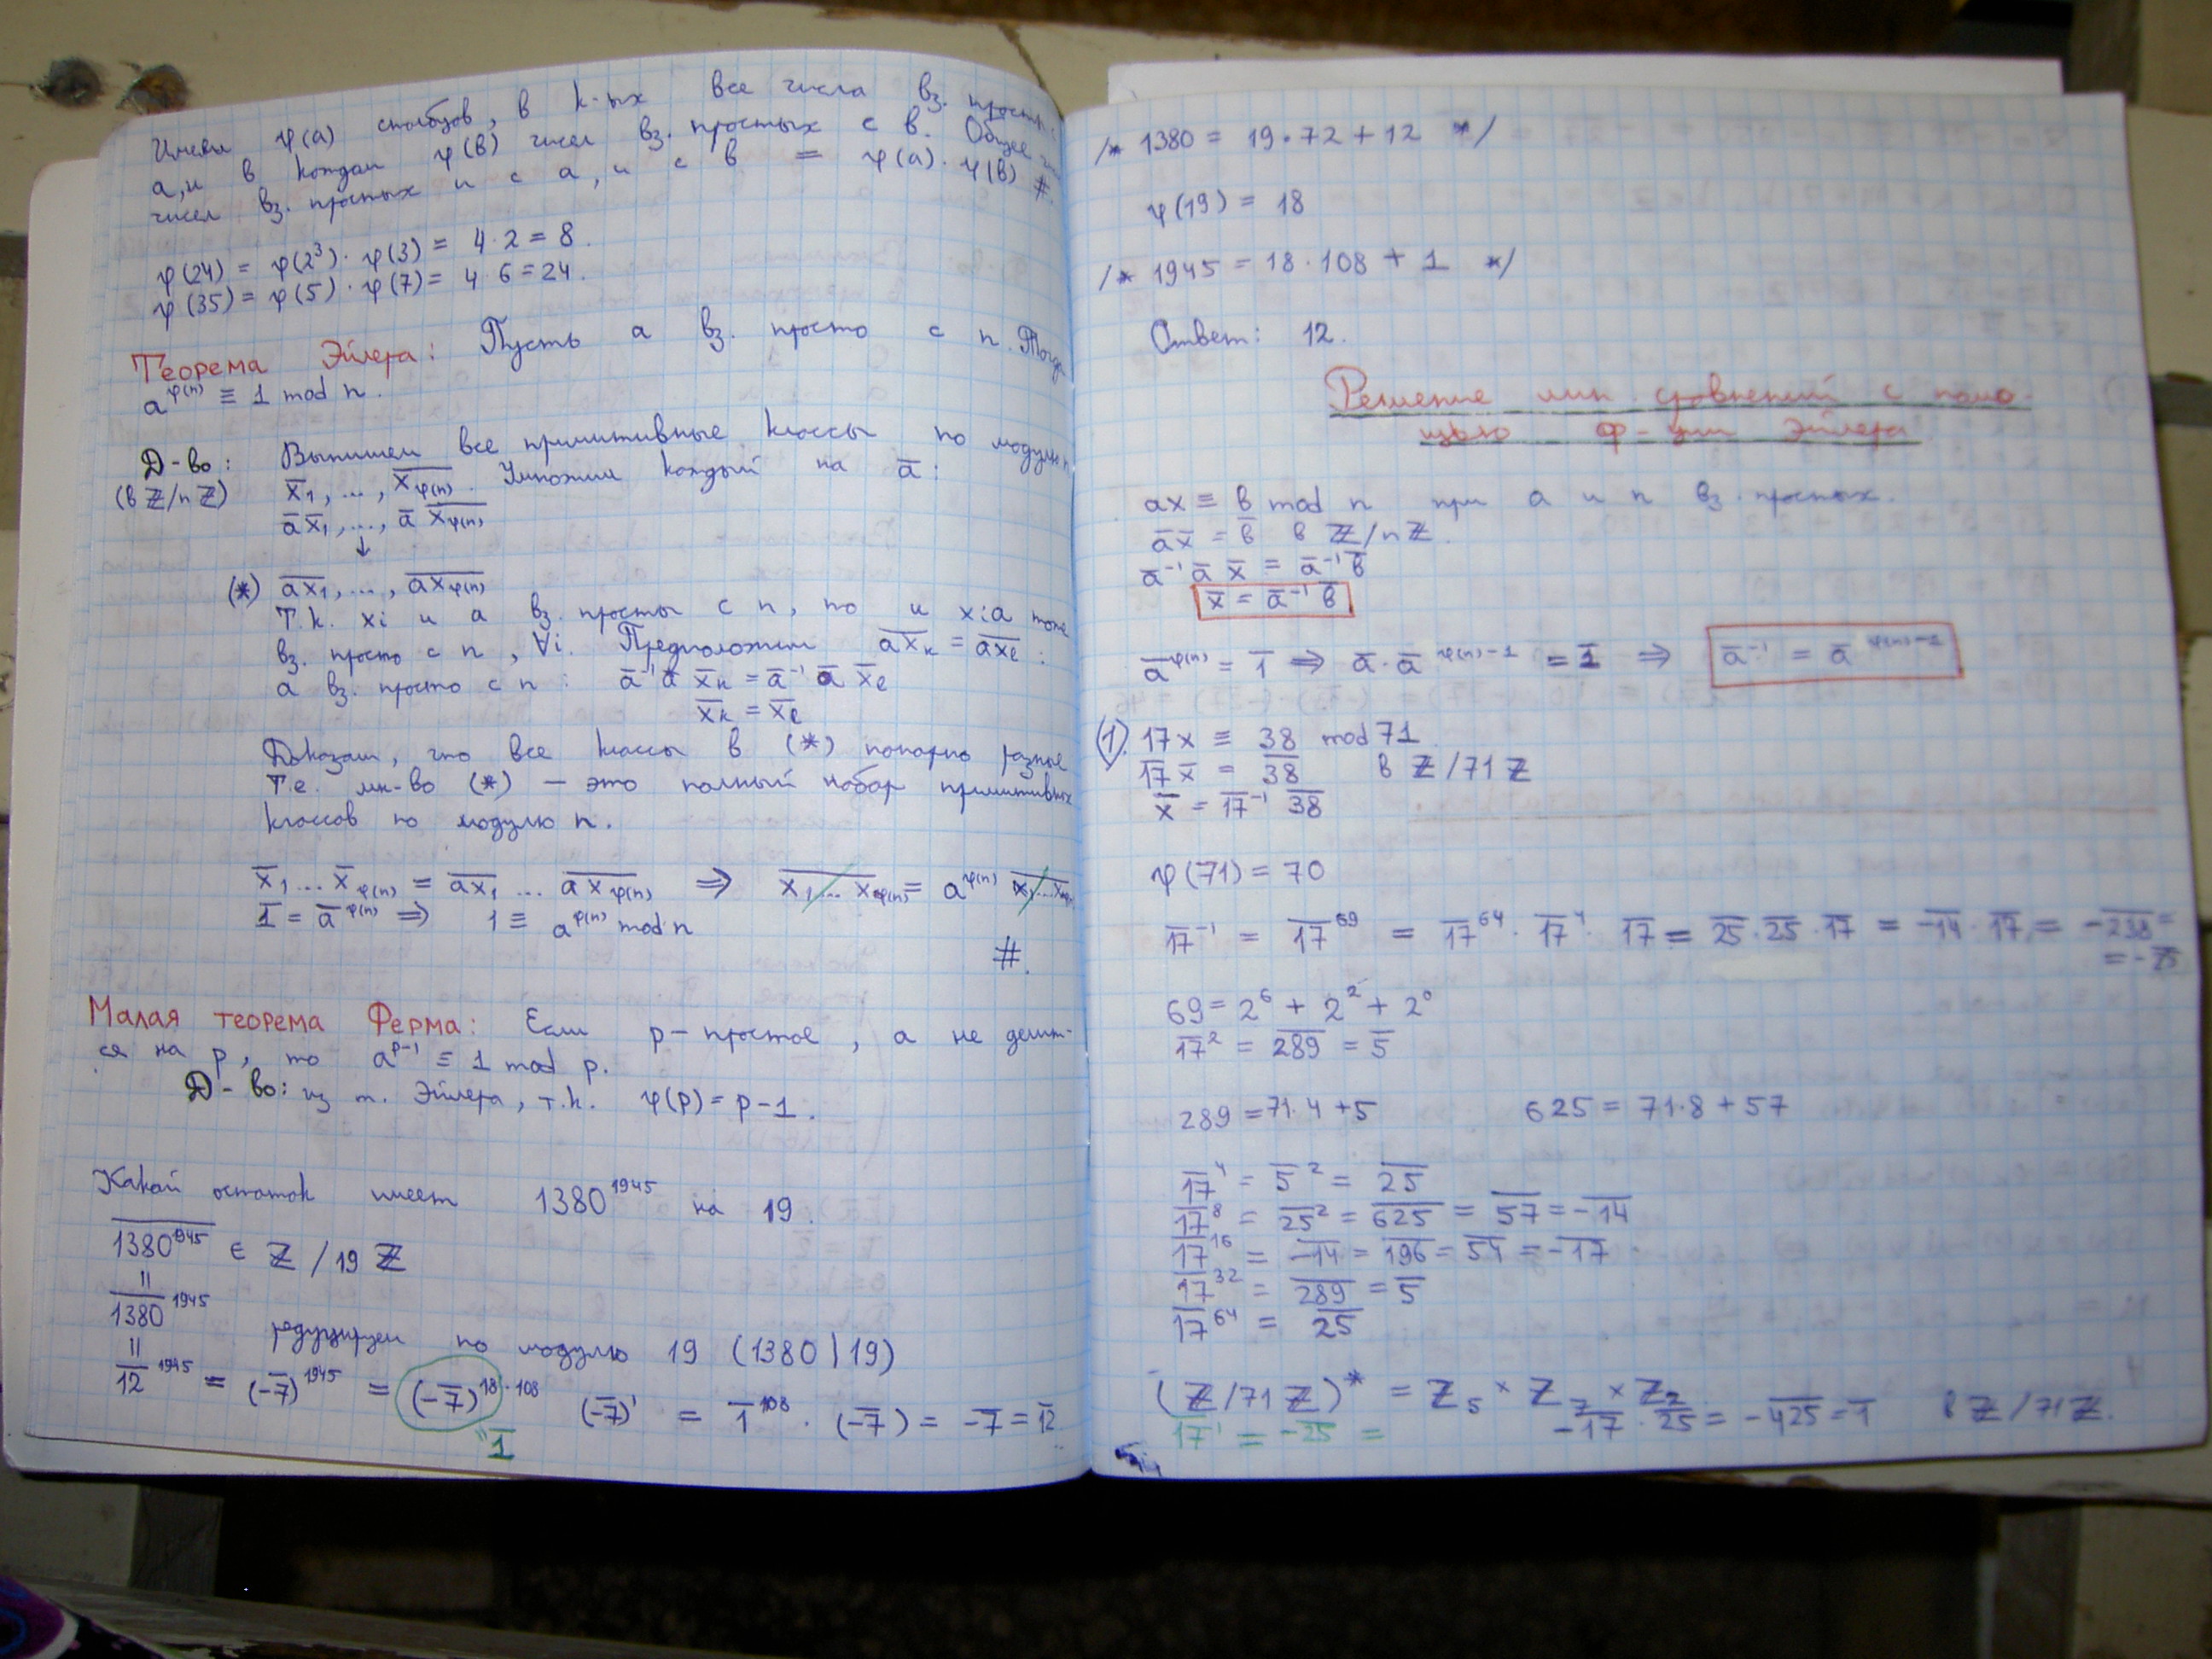 Имеем φ(a) столбцов, в к-ых все числа вз. просты с
a, и в каждом φ(b) чисел вз. простых с b. Общее
чисел вз. простых и с a, и с b = φ(a)·φ(b) #.
φ(24) = φ(2³)·φ(3) = 4·2 = 8.
φ(35) = φ(5)·φ(7) = 4·6 = 24.
Теорема Эйлера: Пусть a вз. просто с n. Тогда
a^φ(n) ≡ 1 mod n.
Д-во: Выпишем все примитивные классы по модулю n
(в ℤ/nℤ) x̅₁, ..., x̅_φ(n). Умножим каждый на a̅:
a̅x̅₁, ..., a̅ x̅_φ(n)
↓
(*) a̅x̅₁, ..., a̅x̅_φ(n)
Т.к. xi и a вз. просты с n, то и xia тоже
вз. просто с n, ∀i. Предположим a̅x̅ₖ = a̅x̅ₑ:
a вз. просто с n: a̅⁻¹ a̅ x̅ₖ = a̅⁻¹ a̅ x̅ₑ
x̅ₖ = x̅ₑ
Доказали, что все классы в (*) попарно разные
Т.е. мн-во (*) – это полный набор примитивных
классов по модулю n.
x̅₁...x̅_φ(n) = a̅x̅₁ ... a̅x̅_φ(n) ⇒ x₁...x_φ(n) = a^φ(n) x₁...x_φ(n)
1̅ = a̅^φ(n) ⇒ 1 ≡ a^φ(n) mod n
#.
Малая теорема Ферма: Если p – простое, a не делит-
ся на p, то a^(p-1) ≡ 1 mod p.
Д-во: из т. Эйлера, т.к. φ(p) = p-1.
Какой остаток имеет 1380¹⁹⁴⁵ на 19.
1380⁹⁴⁵ ∈ ℤ/19ℤ
||
1380¹⁹⁴⁵
|| редуцируем по модулю 19 (1380 | 19)
12¹⁹⁴⁵ = (-7̅)¹⁹⁴⁵ = (-7̅)¹⁸·¹⁰⁸ (-7̅)¹ = 1̅¹⁰⁸ · (-7̅) = -7̅ = 12
"1̅
/* 1380 = 19·72 + 12 */
φ(19) = 18
/* 1945 = 18·108 + 1 */
Ответ: 12.
Решение лин. сравнений с помо-
щью ф-ции Эйлера
ax ≡ b mod n при a и n вз. простых.
a̅x̅ = b̅ в ℤ/nℤ.
a̅⁻¹ a̅ x̅ = a̅⁻¹ b̅
x̅ = a̅⁻¹ b̅
a̅^φ(n) = 1̅ ⇒ a̅·a̅^(φ(n)-1) = 1̅ ⇒ a̅⁻¹ = a̅^(φ(n)-1)
(1). 17x ≡ 38 mod 71
17 x̅ = 38 в ℤ/71ℤ
x̅ = 17⁻¹ 38
φ(71) = 70
17⁻¹ = 17⁶⁹ = 17⁶⁴ · 17⁴ · 17 = 25·25·17 = -14·17 = -238 =
= -25
69 = 2⁶ + 2² + 2⁰
17² = 289 = 5̅
289 = 71·4 + 5 625 = 71·8 + 57
17⁴ = 5̅² = 25
17⁸ = 25² = 625 = 57 = -14
17¹⁶ = -14 = 196 = 54 = -17
17³² = 289 = 5̅
17⁶⁴ = 25
(ℤ/71ℤ)* = Z₅ × Z₇ × Z₂
17¹ = -25 = -17·25 = -425 = 1̅ в ℤ/71ℤ.